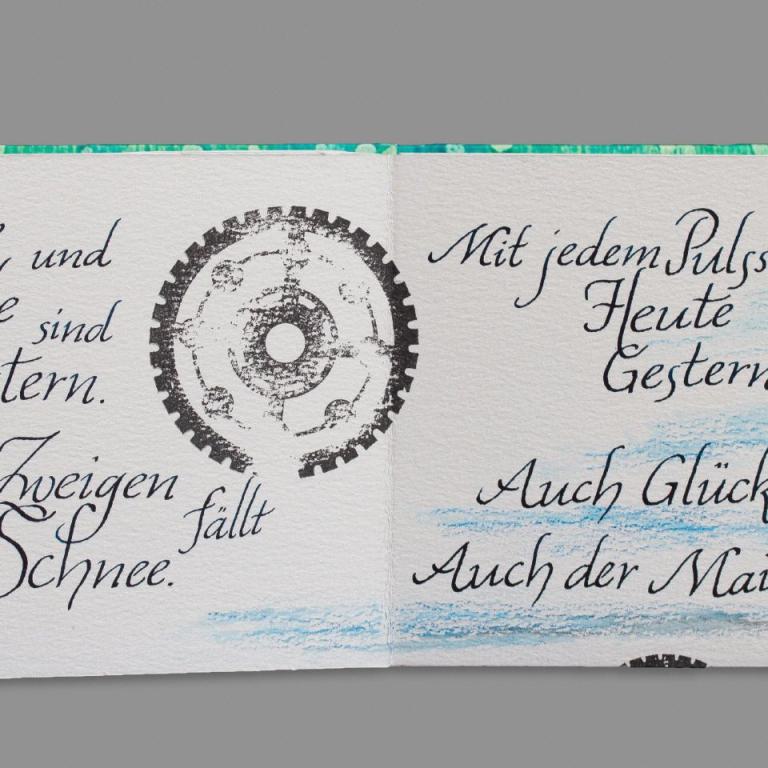 und
sind
tern.
Zweigen
fällt
Schnee.
Mit jedem Pulss
Heute
Gestern
Auch Glück
Auch der Mai